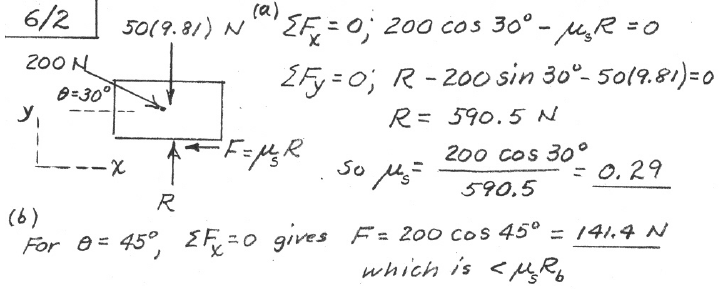 6/2
50(9.81) N
200 N
θ=30°
y
x
F=μₛR
R
(a) ΣFₓ=0; 200 cos 30° - μₛR = 0
ΣF_y=0; R - 200 sin 30° - 50(9.81)=0
R = 590.5 N
so μₛ = 200 cos 30° / 590.5 = 0.29
(b)
For θ = 45°, ΣFₓ=0 gives F = 200 cos 45° = 141.4 N
which is < μₛR_b